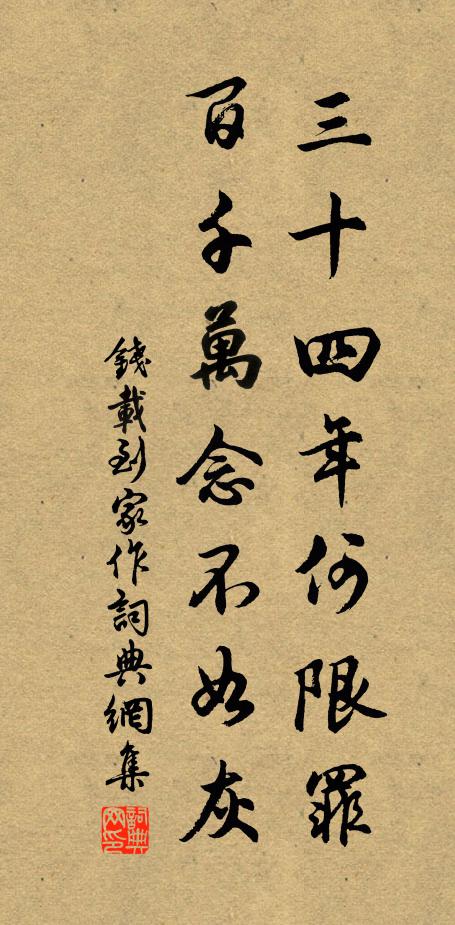 三十四年何限罪
百千萬念不如灰
錢載到家作詞典網集
詞典
網印